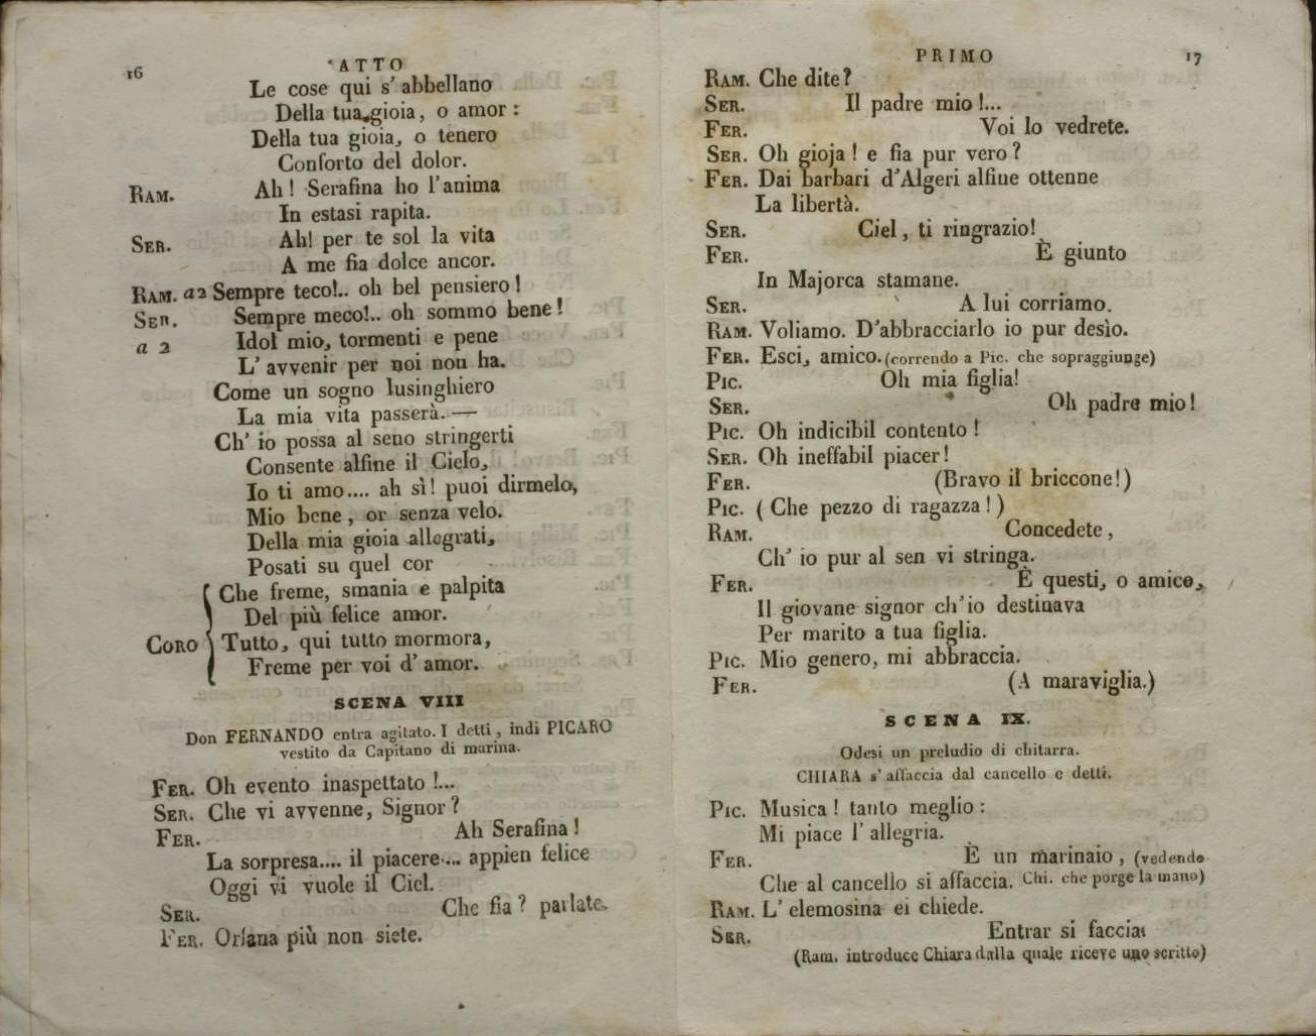 16
ATTO
Le cose qui s' abbellano
Della tua gioia, o amor :
Della tua gioia, o tenero
Conforto del dolor.
RAM. Ah ! Serafina ho l'anima
In estasi rapita.
SER. Ah! per te sol la vita
A me fia dolce ancor.
RAM. a 2 Sempre teco!.. oh bel pensiero !
SER. Sempre meco!.. oh sommo bene !
a 2 Idol mio, tormenti e pene
L' avvenir per noi non ha.
Come un sogno lusinghiero
La mia vita passerà. —
Ch' io possa al seno stringerti
Consente alfine il Cielo,
Io ti amo.... ah sì! puoi dirmelo,
Mio bene , or senza velo.
Della mia gioia allegrati,
Posati su quel cor
Che freme, smania e palpita
Del più felice amor.
CORO Tutto, qui tutto mormora,
Freme per voi d' amor.
SCENA VIII
Don FERNANDO entra agitato. I detti , indi PICARO
vestito da Capitano di marina.
FER. Oh evento inaspettato !...
SER. Che vi avvenne, Signor ?
FER. Ah Serafina !
La sorpresa.... il piacere.... appien felice
Oggi vi vuole il Ciel.
SER. Che fia ? parlate.
FER. Orfana più non siete.
PRIMO
17
RAM. Che dite ?
SER. Il padre mio !...
FER. Voi lo vedrete.
SER. Oh gioja ! e fia pur vero ?
FER. Dai barbari d'Algeri alfine ottenne
La libertà.
SER. Ciel , ti ringrazio!
FER. È giunto
In Majorca stamane.
SER. A lui corriamo.
RAM. Voliamo. D'abbracciarlo io pur desìo.
FER. Esci, amico. (correndo a Pic. che sopraggiunge)
PIC. Oh mia figlia!
SER. Oh padre mio!
PIC. Oh indicibil contento !
SER. Oh ineffabil piacer!
FER. (Bravo il briccone!)
PIC. ( Che pezzo di ragazza ! )
RAM. Concedete ,
Ch' io pur al sen vi stringa.
FER. È questi, o amico,
Il giovane signor ch'io destinava
Per marito a tua figlia.
PIC. Mio genero, mi abbraccia.
FER. (A maraviglia.)
SCENA IX.
Odesi un preludio di chitarra.
CHIARA s' affaccia dal cancello e detti.
PIC. Musica ! tanto meglio :
Mi piace l' allegria.
FER. È un marinaio , (vedendo
Che al cancello si affaccia. Chi. che porge la mano)
RAM. L' elemosina ei chiede.
SER. Entrar si faccia.
(Ram. introduce Chiara dalla quale riceve uno scritto)